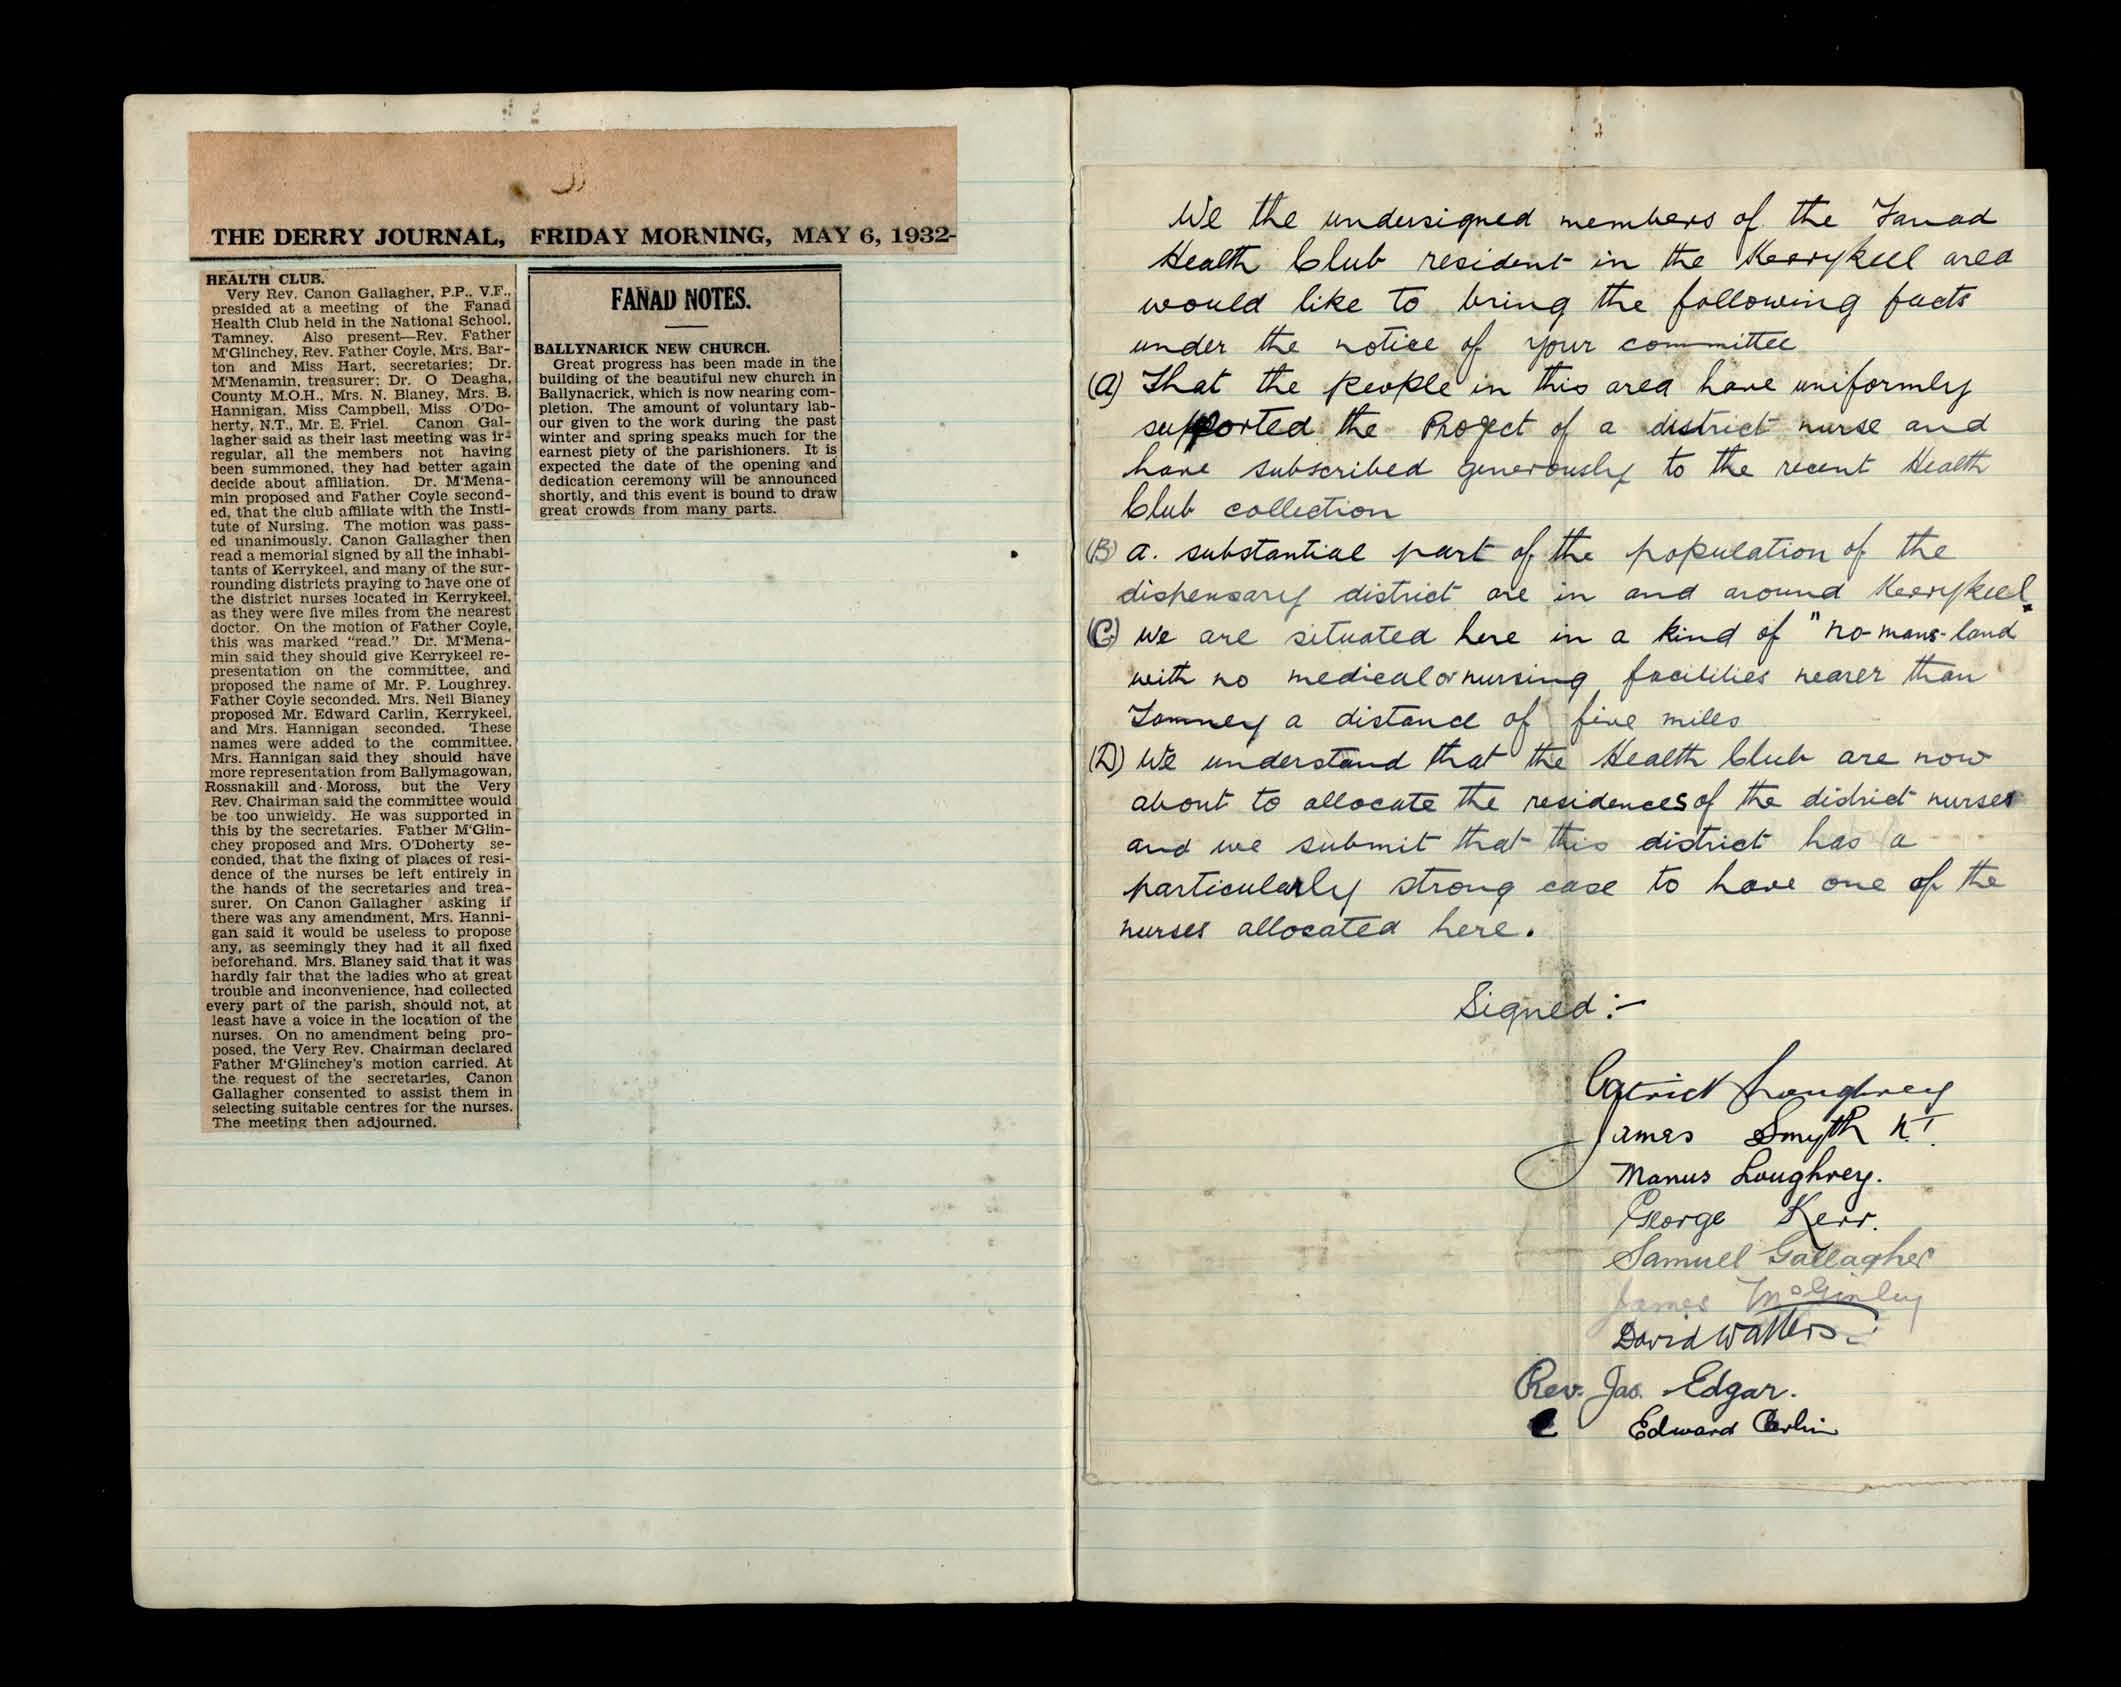 THE DERRY JOURNAL, FRIDAY MORNING, MAY 6, 1932-
HEALTH CLUB.
Very Rev. Canon Gallagher, P.P., V.F.,
presided at a meeting of the Fanad
Health Club held in the National School,
Tamney. Also present—Rev. Father
M'Glinchey, Rev. Father Coyle, Mrs. Bar-
ton and Miss Hart, secretaries; Dr.
M'Menamin, treasurer; Dr. O Deagha,
County M.O.H., Mrs. N. Blaney, Mrs. B.
Hannigan, Miss Campbell, Miss O'Do-
herty, N.T., Mr. E. Friel. Canon Gal-
lagher said as their last meeting was ir-
regular, all the members not having
been summoned, they had better again
decide about affiliation. Dr. M'Mena-
min proposed and Father Coyle second-
ed, that the club affiliate with the Insti-
tute of Nursing. The motion was pass-
ed unanimously. Canon Gallagher then
read a memorial signed by all the inhabi-
tants of Kerrykeel, and many of the sur-
rounding districts praying to have one of
the district nurses located in Kerrykeel,
as they were five miles from the nearest
doctor. On the motion of Father Coyle,
this was marked "read." Dr. M'Mena-
min said they should give Kerrykeel re-
presentation on the committee, and
proposed the name of Mr. P. Loughrey.
Father Coyle seconded. Mrs. Neil Blaney
proposed Mr. Edward Carlin, Kerrykeel,
and Mrs. Hannigan seconded. These
names were added to the committee.
Mrs. Hannigan said they should have
more representation from Ballymagowan,
Rossnakill and Moross, but the Very
Rev. Chairman said the committee would
be too unwieldy. He was supported in
this by the secretaries. Father M'Glin-
chey proposed and Mrs. O'Doherty se-
conded, that the fixing of places of resi-
dence of the nurses be left entirely in
the hands of the secretaries and trea-
surer. On Canon Gallagher asking if
there was any amendment, Mrs. Hanni-
gan said it would be useless to propose
any, as seemingly they had it all fixed
beforehand. Mrs. Blaney said that it was
hardly fair that the ladies who at great
trouble and inconvenience, had collected
every part of the parish, should not, at
least have a voice in the location of the
nurses. On no amendment being pro-
posed, the Very Rev. Chairman declared
Father M'Glinchey's motion carried. At
the request of the secretaries, Canon
Gallagher consented to assist them in
selecting suitable centres for the nurses.
The meeting then adjourned.
FANAD NOTES.
BALLYNARICK NEW CHURCH.
Great progress has been made in the
building of the beautiful new church in
Ballynacrick, which is now nearing com-
pletion. The amount of voluntary lab-
our given to the work during the past
winter and spring speaks much for the
earnest piety of the parishioners. It is
expected the date of the opening and
dedication ceremony will be announced
shortly, and this event is bound to draw
great crowds from many parts.
We the undersigned members of the Fanad
Health Club resident in the Kerrykeel area
would like to bring the following facts
under the notice of your committee
(A) That the people in this area have uniformly
supported the Project of a district nurse and
have subscribed generously to the recent Health
Club collection
(B) A substantial part of the population of the
dispensary district are in and around Kerrykeel.
(C) We are situated here in a kind of "no-mans-land
with no medical or nursing facilities nearer than
Tamney a distance of five miles
(D) We understand that the Health Club are now
about to allocate the residences of the district nurses
and we submit that this district has a
particularly strong case to have one of the
nurses allocated here.
Signed:-
Patrick Loughrey
James Smyth N.T.
Manus Loughrey.
George Kerr.
Samuel Gallagher
James McGinley
David Watters
Rev. Jas. Edgar.
Edward Carlin